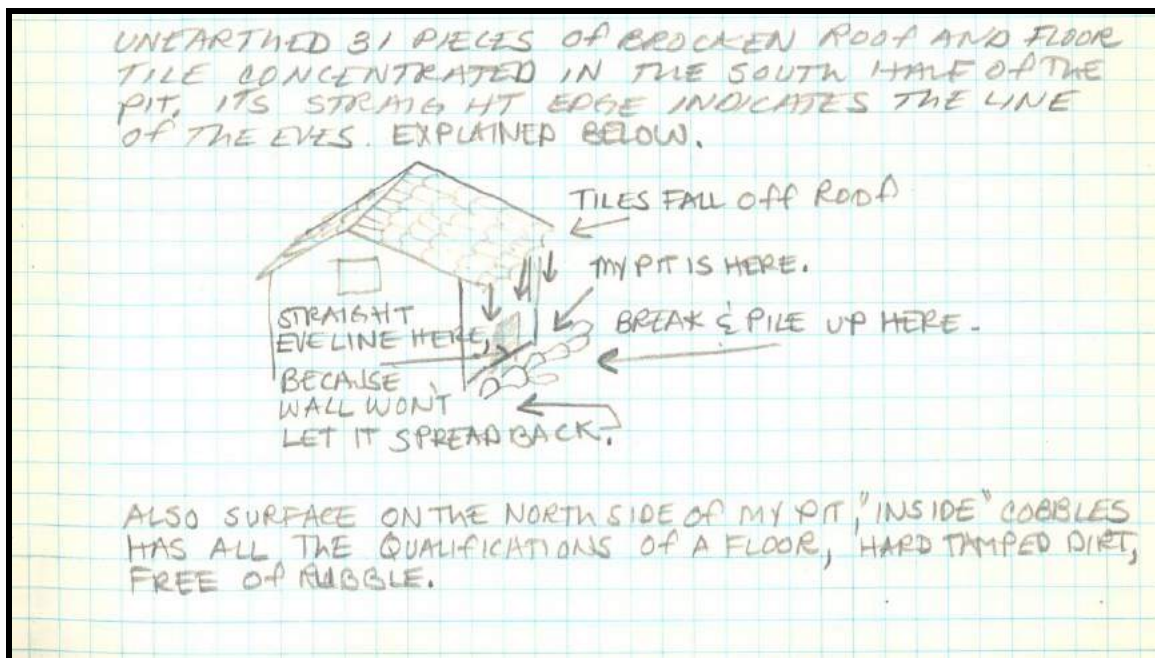 UNEARTHED 31 PIECES OF BROCKEN ROOF AND FLOOR
TILE CONCENTRATED IN THE SOUTH HALF OF THE
PIT. ITS STRAIGHT EDGE INDICATES THE LINE
OF THE EVES. EXPLAINED BELOW.
TILES FALL OFF ROOF
MY PIT IS HERE.
BREAK & PILE UP HERE.
STRAIGHT
EVE LINE HERE,
BECAUSE
WALL WON'T
LET IT SPREAD BACK.
ALSO SURFACE ON THE NORTH SIDE OF MY PIT, "INSIDE" COBBLES
HAS ALL THE QUALIFICATIONS OF A FLOOR, HARD TAMPED DIRT,
FREE OF RUBBLE.